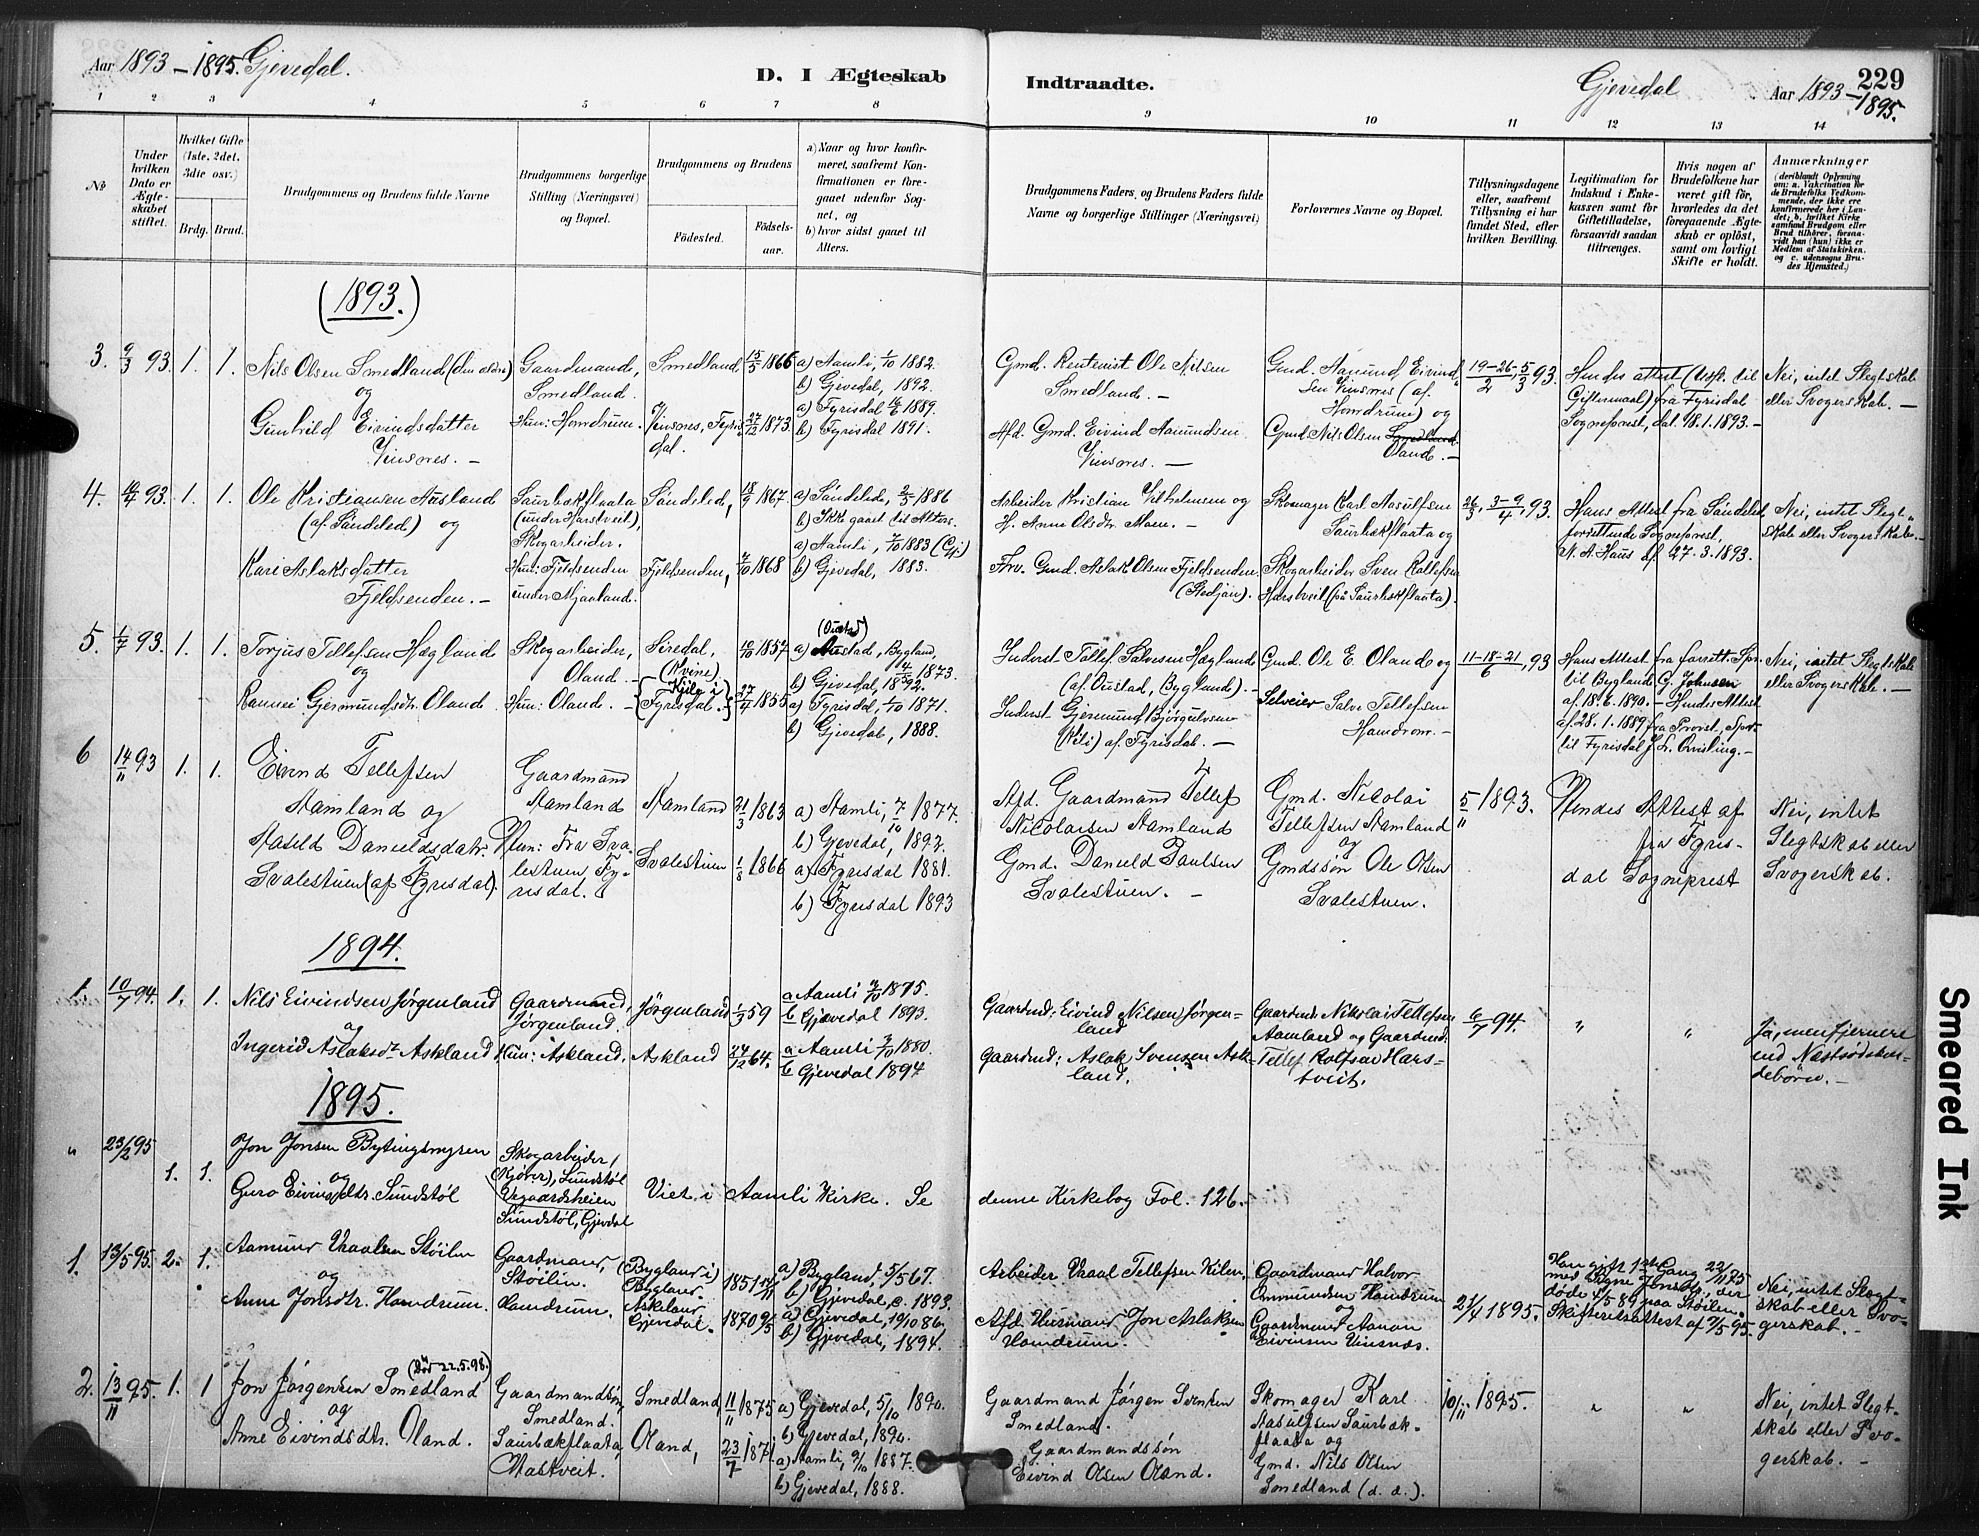 Aar 1893 – 1895. Gjevedal.
D. I Ægteskab Indtraadte.
Gjevedal Aar 1893 – 1895.
229
1 2 3 4 5 6 7 8 9 10 11 12 13 14
No
Under hvilken Dato er Ægteskabet stiftet.
Hvilket Gifte (1ste, 2det, 3die osv.)
Brdg. Brud.
Brudgommens og Brudens fulde Navne
Brudgommens borgerlige Stilling (Næringsvei) og Bopæl.
Brudgommens og Brudens
Fødested.
Fødselsaar.
a) Naar og hvor konfirmeret, saafremt Konfirmationen er foregaaet udenfor Sognet, og
b) hvor sidst gaaet til Alters.
Brudgommens Faders, og Brudens Faders fulde Navne og borgerlige Stillinger (Næringsvei)
Forlovernes Navne og Bopæl.
Tillysningsdagene eller, saafremt Tillysning ei har fundet Sted, efter hvilken Bevilling.
Legitimation for Indskud i Enkekassen samt for Giftetilladelse, forsaavidt saadan tiltrænges.
Hvis nogen af Brudefolkene har været gift før, hvorledes da det foregaaende Ægteskab er opløst, samt om lovligt Skifte er holdt.
Anmærkninger (deriblandt Oplysning om: a. Vakcination for de Brudefolks Vedkommende, der ikke ere konfirmerede her i Landet; b. hvilket Kirkesamfund Brudgom eller Brud tilhører, forsaavidt han (hun) ikke er Medlem af Statskirken, og c. udensogns Brudes Hjemsted.)
(1893.)
3. 9/3 93. 1. 1. Nils Olsen Smedland (den ældre)
og
Gunhild Eivindsdatter
Vinsnes. –
Gaardmand,
Smedland.
Hun: Homdrum.
Smedland, 15/5 1866
Vinsnes, Fyrisdal. 27/12 1873
a) Aamli, 1/10 1882.
b) Gjevedal, 1892.
a) Fyrisdal 16/6 1889.
b) Fyrisdal 1891.
Gmd. Rentenist Ole Nilsen
Smedland. –
Afd. Gmd. Eivind Aamundsen
Vinsnes. –
Gmd. Aamund Eivindsen Vinsnes (af
Homdrum) og
Gmd. Nils Olsen Smedland
Oland. –
19–26/2, 5/3 93.
Hendes attest (Udst. til
Giftermaal) fra Fyrisdal
Sognepræst, dat. 18.1.1893. –
Nei, intet Slegtskab
eller Svogerskab. –
4. 16/4 93. 1. 1. Ole Kristiansen Aasland
(af Søndeled) og
Kari Aslaksdatter
Fjeldsenden. –
Saurbækflaata
(under Harstveit),
Skogarbeider.
Hun: Fjeldsenden
under Mjaaland.
Søndeled, 18/9 1867.
Fjeldsenden, 7/10 1868
a) Søndeled, 2/5 1886
b) Ikke gaaet til Alters.
a) Aamli, 7/10 1883 (Gj)
b) Gjevedal, 1883.
Arbeider Kristian Vilhelmsen og
H. Anne Olsdtr. Moen. –
Frv. Gmd. Aslak Olsen Fjeldsenden.
Skomager Karl Aasulfsen
Saurbækflaata og
Skogarbeider Sven Rollefsen
Harstveit (på Saurbækflaata).
26/3, 3–9/4, 93.
Hans Attest fra Søndeled,
forrettende Sognepræst,
af 27.3.1893.
Nei, intet Slegtskab eller Svogerskab. –
5. 1/7 93. 1. 1. Torjus Tellefsen Hægland
og
Rannei Gjermundsdtr. Oland.
Skogarbeider,
Oland. –
Hun: Oland. –
Siredal, (Kvine) 10/10 1857
Kile i Fyrisdal. 27/4 1855
(Oustad)
a) Austad, Bygland,
14/5 1873.
b) Gjevedal, 1892.
a) Fyrisdal, 1/10 1871.
b) Gjevedal, 1888.
Inderst Tellef Salvesen Hægland
(af Oustad, Bygland). –
Inderst Gjermund Bjørgulvsen
af Fyrisdal. –
Gmd. Ole E. Oland og
Selveier Salve Tellefsen
Hamdrom. –
11–18–21/6, 93
Hans Attest fra forrett. Spr.
til Bygland G. Johnsen
af 18.6.1890. – Hendes Attest
af 28.1.1889 fra Provst, Spr.
til Fyrisdal J. L. Qvisling. –
Nei, intet Slegtskab
eller Svogerskab. –
6 14/11 93 1. 1. Eivind Tellefsen
Aamland og
Aaseld Danieldsdatr.
Svalestuen (af Fyrisdal).
Gaardmand
Aamland
Hun: Fra Svalestuen Fyrisdal.
Aamland 21/3 1863
Svalestuen 1/8 1866
a) Aamli, 7/10 1877.
b) Gjevedal, 1892.
a) Fyrisdal 1881.
b) Fyrisdal 1893
Afd. Gaardmand Tellef
Nicolaisen Aamland
Gmd. Danield Paulsen
Svalestuen. –
Gmd. Nicolai
Tellefsen Aamland
og
Gmdssøn Ole Olsen
Svalestuen.
5/11 1893.
Hendes Attest af
fra Fyrisdal Sogneprest
Nei, intet
Slegtskab eller
Svogerskab.
1894.
1. 10/7 94. 1. 1. Nils Eivindsen Jørgenland
og
Ingerid Aslaksdr. Askland.
Gaardmand,
Jørgenland.
Hun: Askland.
Jørgenland 1/3 59
Askland 24/12 64.
a Aamli 3/10 1875.
b Gjævedal 1893.
a Aamli 3/10 1880.
b Gjevedal 1894
Gaardmd: Eivind Nilsen Jørgenland
Gaardmd: Aslak Svensen Askland.
Gaardmd: Nikolai Tellefsen
Aamland og Gaardmd:
Tellef Rolfsen Harstveit.
6/7 94.
" "
Ja, men fjernere
end Næstsødskendebörn. –
1895.
" 23/2 95 1. 1. Jon Jonsen Bytingsmyren
og
Guro Eivindsdtr. Sundstøl
Skogarbeider,
Sundstøl
Vegaardsheien
Sundstøl, Gjevdal
Viet i Aamli Kirke. Se denne Kirkebog Fol. 126.
1. 13/5 95. 2. 1. Aamund Vraalsen Støilen
og
Anne Jonsdtr. Hamdrum.
Gaardmand,
Støilen.
Hamdrum.
(Bygland i)
Bygland. 1851 14/11
Askland
Gjevedal. 1870 9/5
a) Bygland, 5/5 67.
b) Gjevedal, c. 1893.
a) Gjevedal, 19/10 86.
b) Gjevedal, 1894.
Arbeider Vraal Tellefsen Kilen.
Afd. Huusmand Jon Aslaksen
Hamdrum.
Gaardmand Halvor
Ommundsen Hamdrum
og
Gaardmand Aanon
Eivindsen Vinsnæs.
21/4 1895.
Han gift 1ste Gang 22/11 75
med Signe Jonsdtr., der
døde 4/5 89 paa Støilen.
Skifteretsattest af 7/5 95.
Nei, intet Slegtskab eller Svogerskab. –
2. 13/11 95. 1. 1 (Død 22.5.98.)
Jon Jørgensen Smedland
og
Anne Eivindsdtr. Oland.
Gaardmandssøn,
Smedland.
Saurbækflaata,
Mastveit.
Smedland, 11/11 1875
Oland, 23/7 1871
a) Gjevedal, 5/10 1890.
b) Gjevedal, 1894.
a) Aamli, 9/10 1887.
b) Gjevedal, 1888.
Gaardmand Jørgen Svensen
Smedland.
Gaardmandssøn
Eivind Olsen Oland.
Skomager Karl
Aasulfsen Saurbækflaata og
Gmd. Nils Olsen
Smedland (d. æ.).
10/11 1895.
" "
Nei, intet Slegtskab eller Svogerskab. –
Smeared Ink